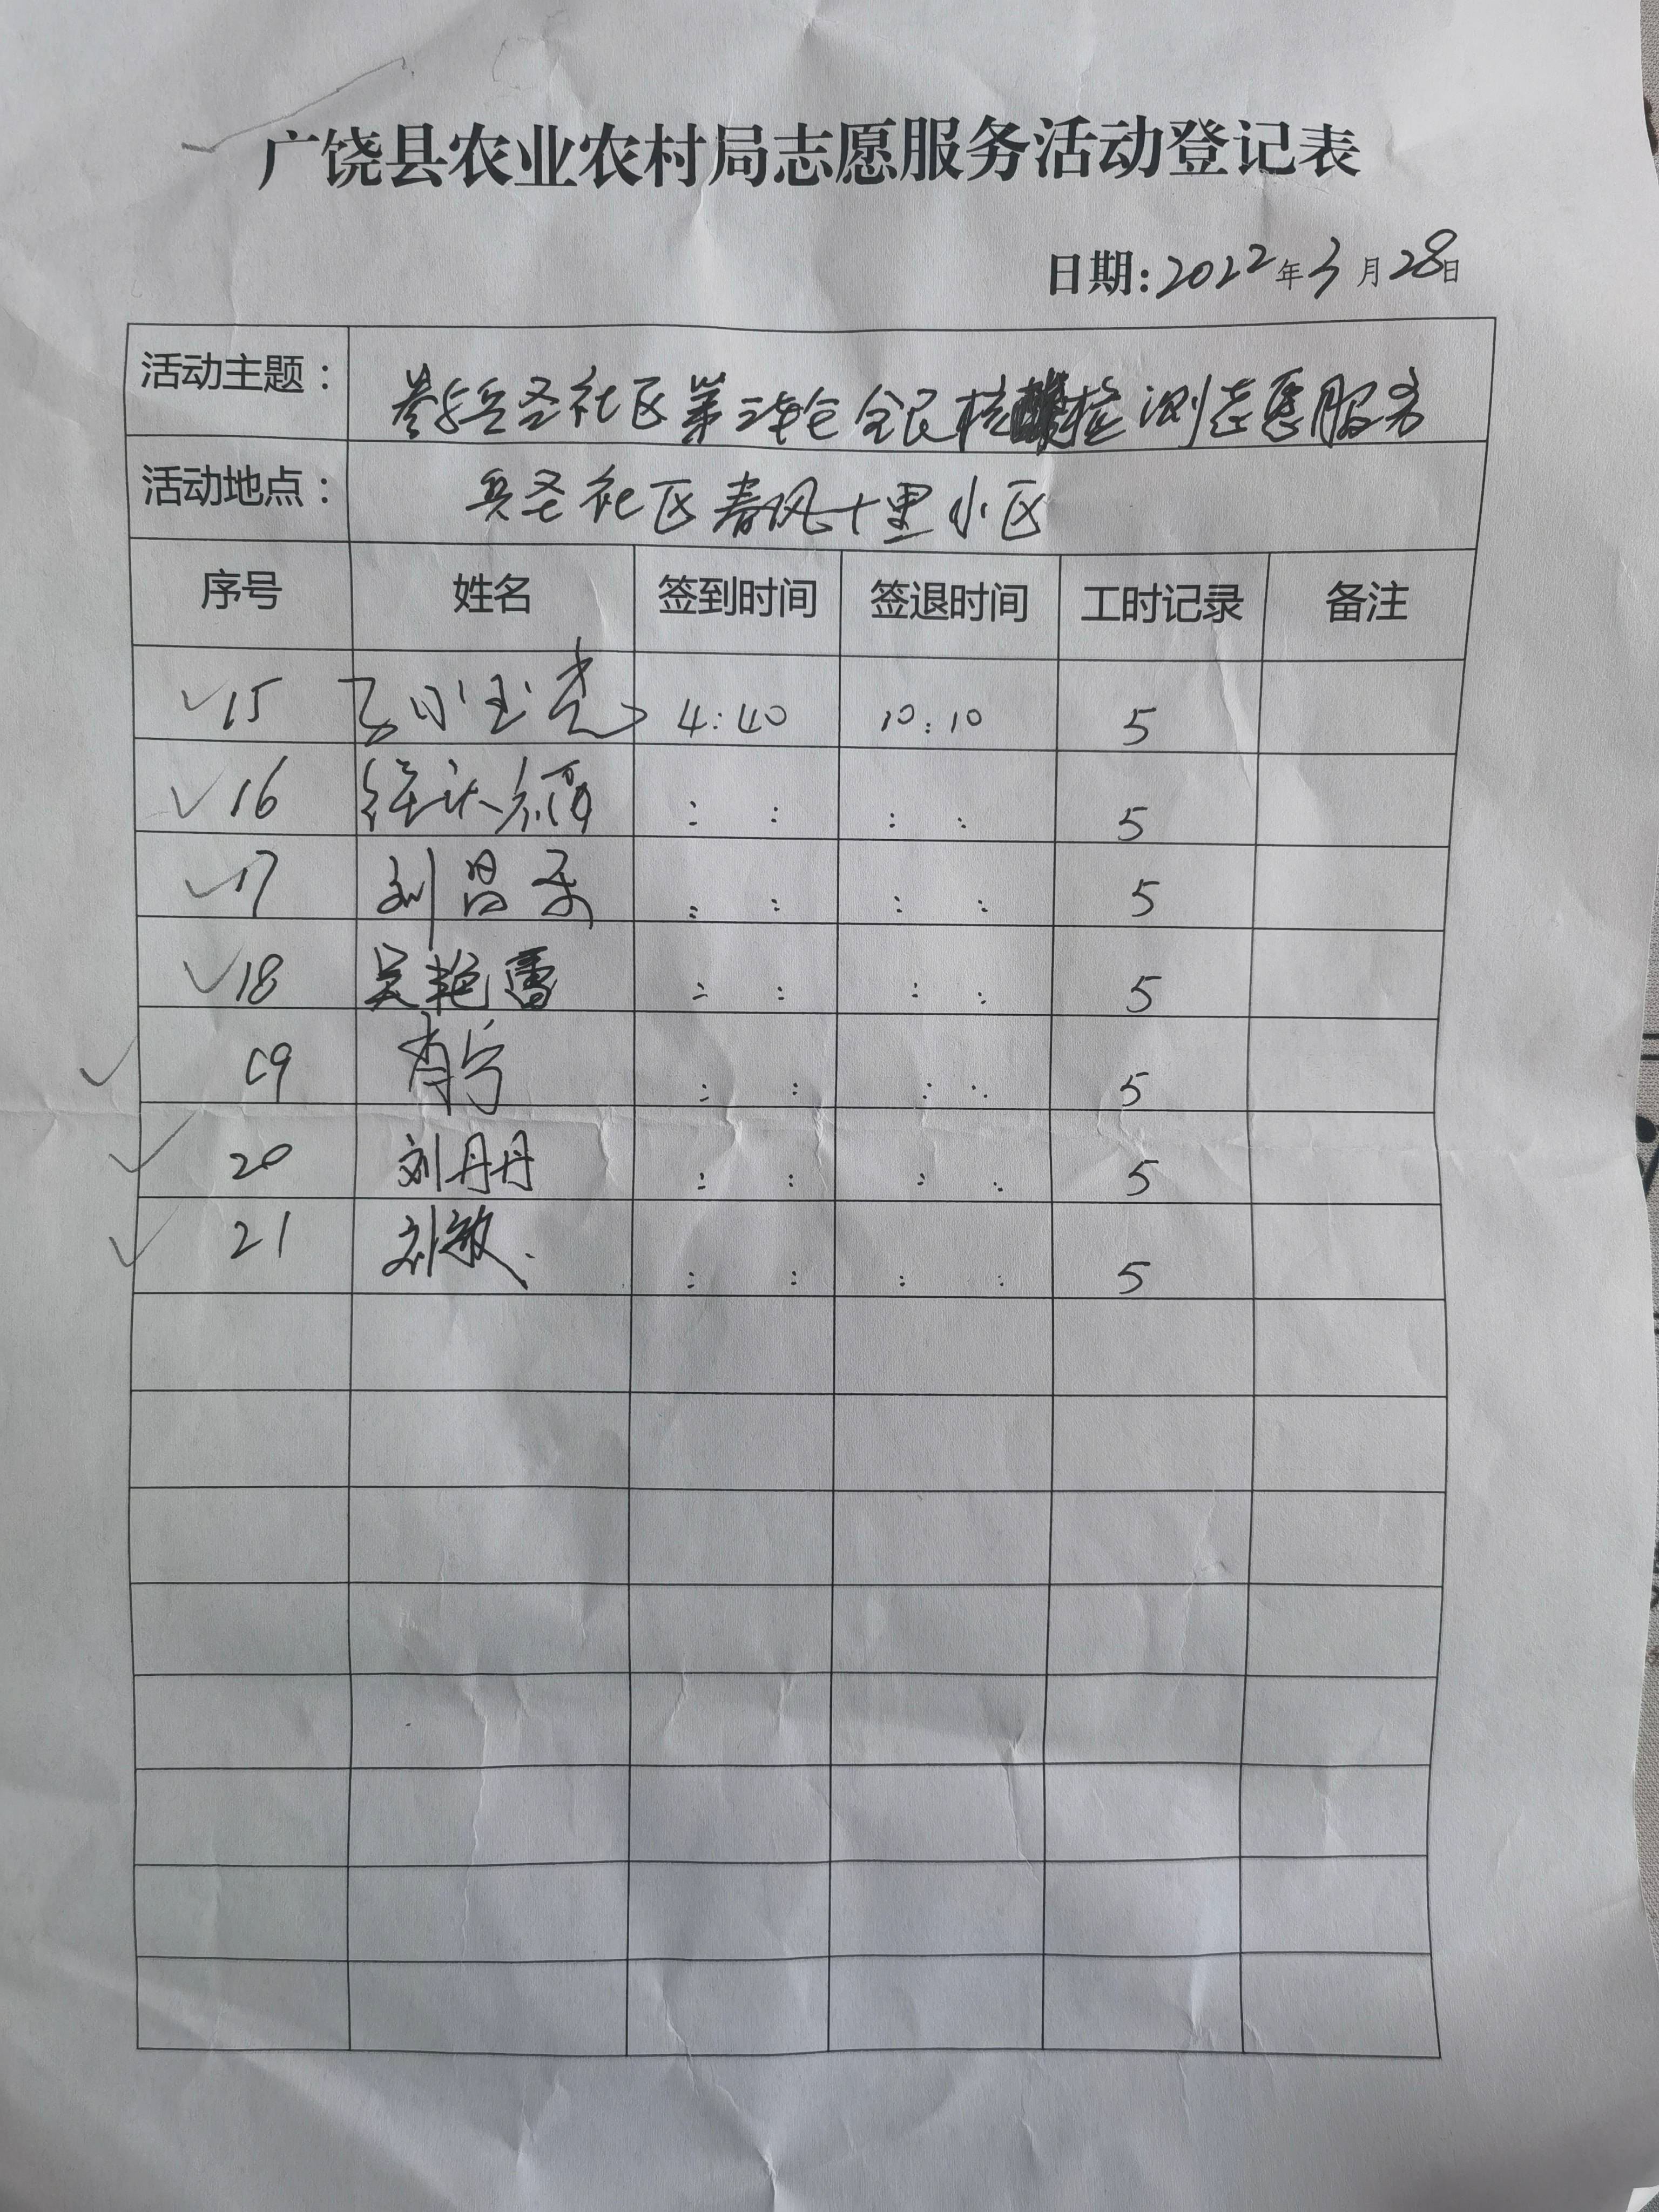 广饶县农业农村局志愿服务活动登记表
日期:2022年3月28日
活动主题: 参与兵圣社区第二轮全民核酸检测志愿服务
活动地点: 兵圣社区春风十里小区
序号 姓名 签到时间 签退时间 工时记录 备注
✓15 4:40 10:10 5
✓16 : : : : 5
✓17 刘昌 : : : : 5
✓18 吴艳雷 : : : : 5
✓19 肖宁 : : : : 5
✓20 刘丹丹 : : : : 5
✓21 刘敏 : : : : 5